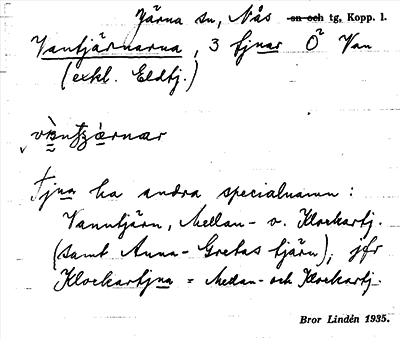 Järna sn, Nås sn och tg, Kopp. l.
Vantjärnarna, 3 tjnar O² Van
(exkl. Eldtj.)
Tjna ha andra specialnamn:
Vanntjärn, Mellan- o. Klockartj.
(samt Anna-Gretas tjärn); jfr
Klockartjna = Mellan- och Klockartj.
Bror Lindén 1935.